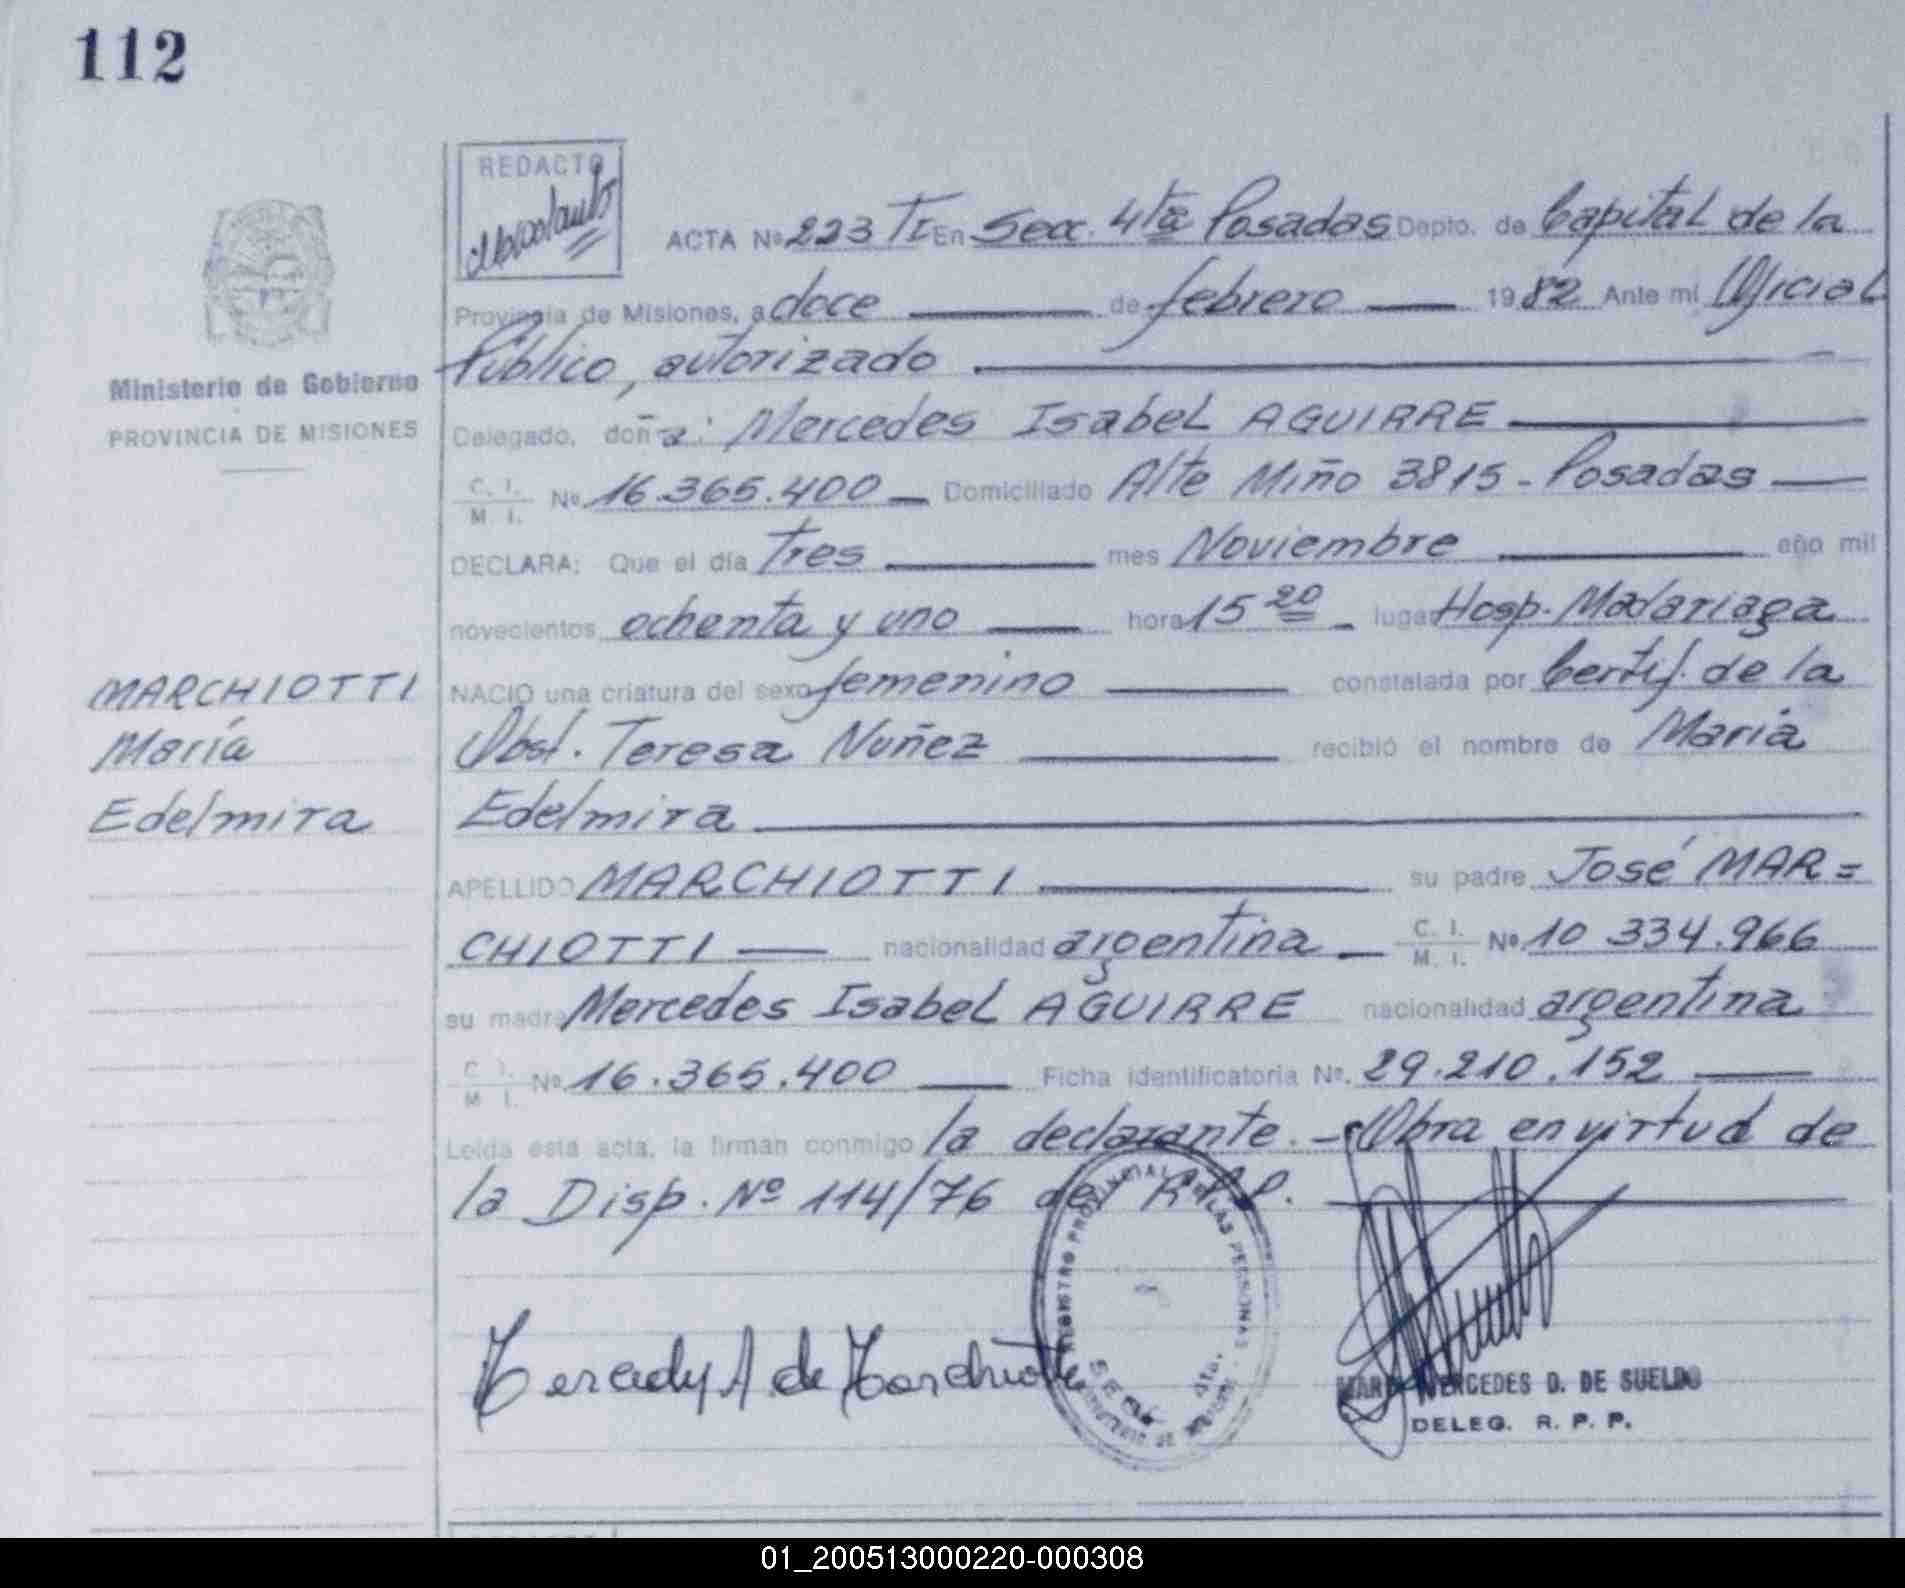 112
REDACTO
ACTA Nº 223 TI En Secc. 4ta Posadas Depto. de Capital de la
Provincia de Misiones, a doce de febrero 1982 Ante mi Oficial
Público, autorizado
Ministerio de Gobierno
PROVINCIA DE MISIONES
Delegado, doña: Mercedes Isabel AGUIRRE
C. I. / M. I. Nº 16.365.400 Domiciliado Alte Miño 3815 - Posadas
DECLARA: Que el día Tres mes Noviembre año mil
novecientos ochenta y uno hora 15 20 lugar Hosp. Madariaga
MARCHIOTTI
María
Edelmira
NACIO una criatura del sexo femenino constatada por Certif. de la
Obst. Teresa Nuñez recibió el nombre de María
Edelmira
APELLIDO MARCHIOTTI su padre José MAR=
CHIOTTI nacionalidad argentina C. I. / M. I. Nº 10 334.966
su madre Mercedes Isabel AGUIRRE nacionalidad argentina
C. I. / M. I. Nº 16.365.400 Ficha identificatoria Nº. 29.210.152
Leida esta acta, la firman conmigo la declarante. - Obra en virtud de
la Disp. Nº 114/76 del R.P.P.
REGISTRO PROVINCIAL DE LAS PERSONAS
4ta.
MARIA MERCEDES D. DE SUELDO
DELEG. R. P. P.
01_200513000220-000308